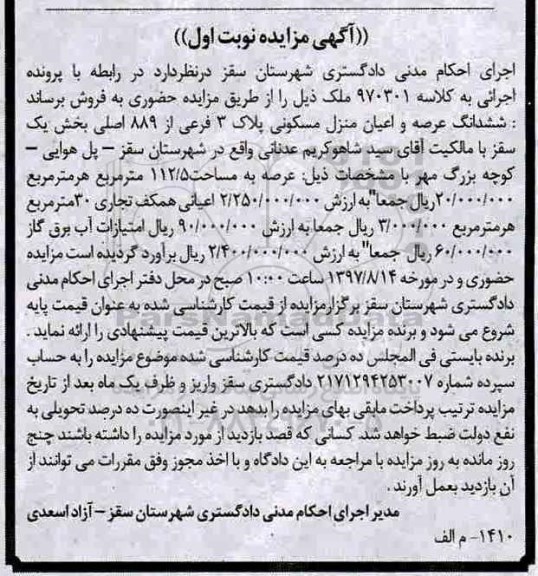 ((آگهی مزایده نوبت اول))
اجرای احکام مدنی دادگستری شهرستان سقز درنظردارد در رابطه با پرونده
اجرائی به کلاسه ۹۷۰۳۰۱ ملک ذیل را از طریق مزایده حضوری به فروش برساند
: ششدانگ عرصه و اعیان منزل مسکونی پلاک ۳ فرعی از ۸۸۹ اصلی بخش یک
سقز با مالکیت آقای سید شاهوکریم عدنانی واقع در شهرستان سقز – پل هوایی –
کوچه بزرگ مهر با مشخصات ذیل: عرصه به مساحت۱۱۲/۵ مترمربع هرمترمربع
۲۰/۰۰۰/۰۰۰ریال جمعا"به ارزش ۲/۲۵۰/۰۰۰/۰۰۰ اعیانی همکف تجاری ۳۰مترمربع
هرمترمربع ۳/۰۰۰/۰۰۰ ریال جمعا به ارزش ۹۰/۰۰۰/۰۰۰ ریال امتیازات آب برق گاز
۶۰/۰۰۰/۰۰۰ ریال جمعا" به ارزش ۲/۴۰۰/۰۰۰/۰۰۰ ریال برآورد گردیده است مزایده
حضوری و در مورخه ۱۳۹۷/۸/۱۴ ساعت ۱۰:۰۰ صبح در محل دفتر اجرای احکام مدنی
دادگستری شهرستان سقز برگزارمزایده از قیمت کارشناسی شده به عنوان قیمت پایه
شروع می شود و برنده مزایده کسی است که بالاترین قیمت پیشنهادی را ارائه نماید .
برنده بایستی فی المجلس ده درصد قیمت کارشناسی شده موضوع مزایده را به حساب
سپرده شماره ۲۱۷۱۲۹۴۲۵۳۰۰۷ دادگستری سقز واریز و ظرف یک ماه بعد از تاریخ
مزایده ترتیب پرداخت مابقی بهای مزایده را بدهد در غیر اینصورت ده درصد تحویلی به
نفع دولت ضبط خواهد شد. کسانی که قصد بازدید از مورد مزایده را داشته باشند چنج
روز مانده به روز مزایده با مراجعه به این دادگاه و با اخذ مجوز وفق مقررات می توانند از
آن بازدید بعمل آورند .
مدیر اجرای احکام مدنی دادگستری شهرستان سقز – آزاد اسعدی
۱۴۱۰- م الف